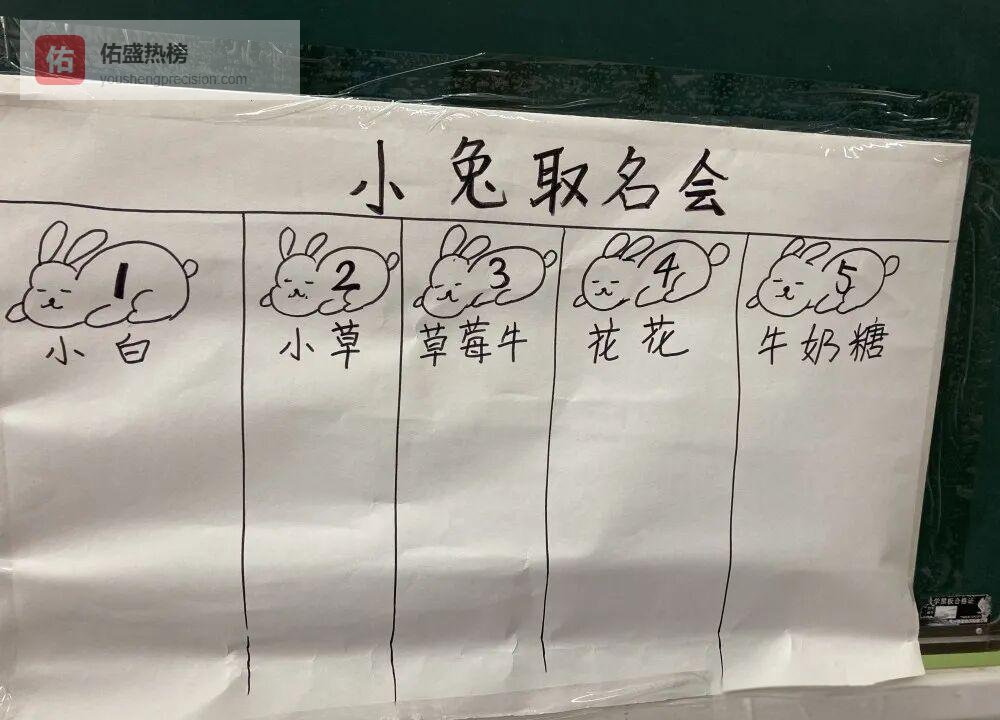 佑 佑盛热榜
youshengprecision.com
小兔取名会
1 2 3 4 5
小白 小草 草莓牛 花花 牛奶糖